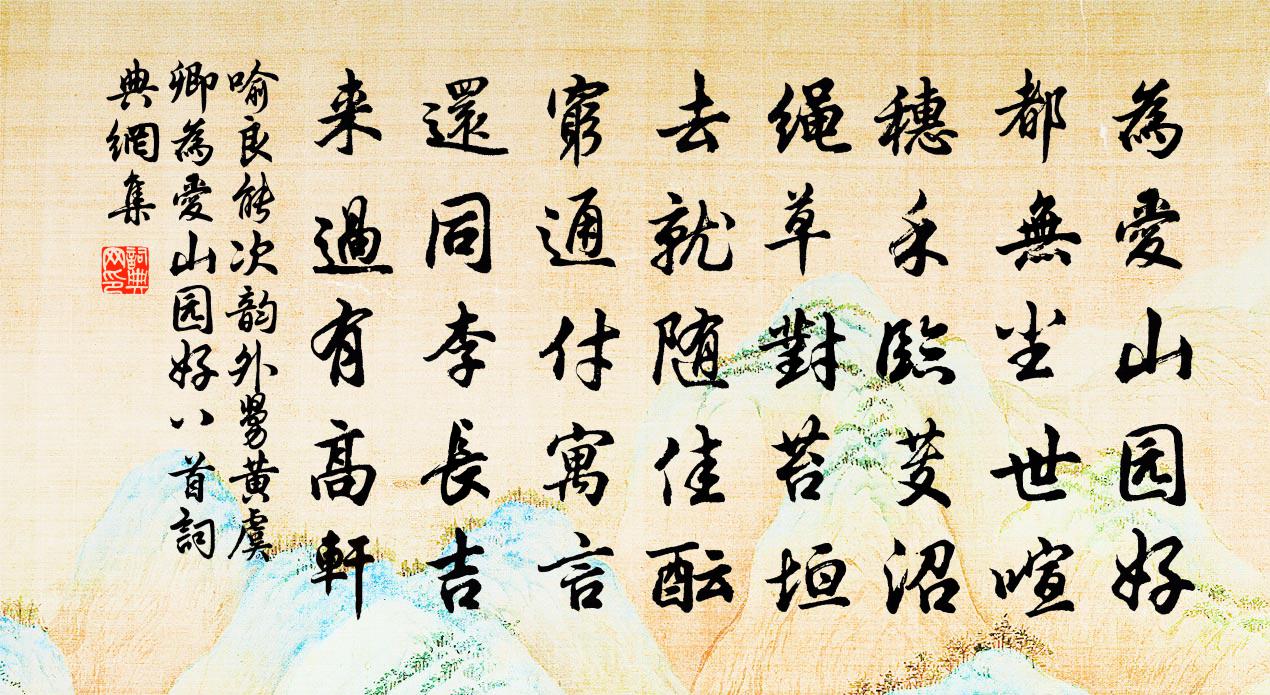 為愛山园好
都無尘世喧
穗禾臨芰沼
绳草對苔垣
去就随佳酝
窮通付寓言
還同李長吉
来過有高軒
喻良能次韵外舅黄虞
卿為愛山园好八首詞
典網集
詞典
网印